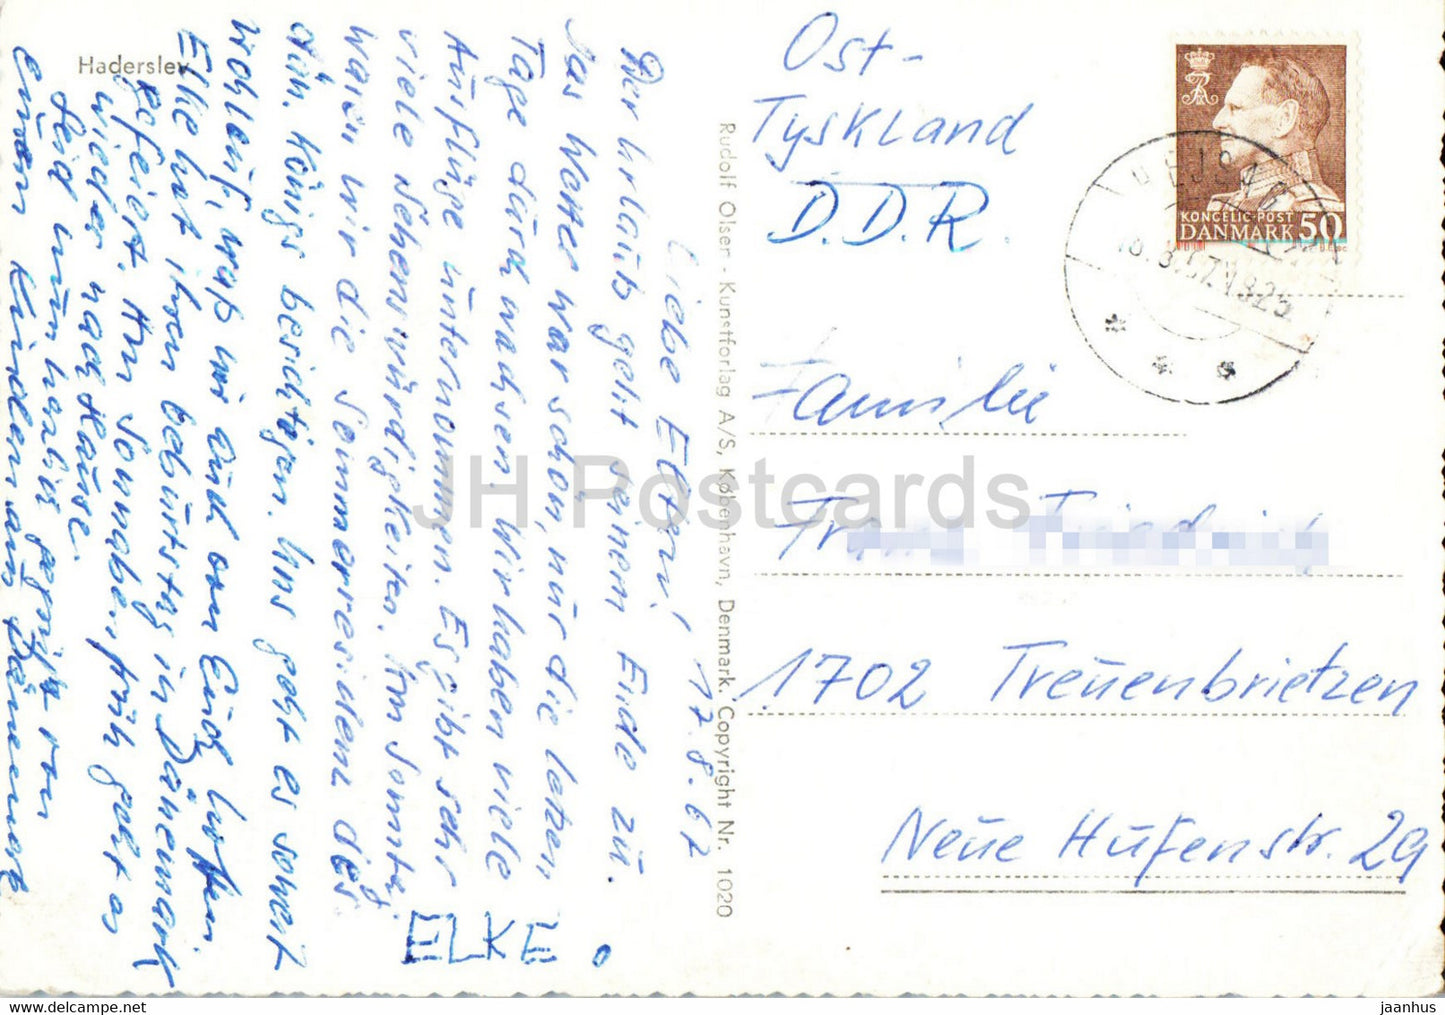 Haderslev
Liebe Eltern! 17.8.67
Der Urlaub geht seinem Ende zu.
Das Wetter war schön, nur die letzen
Tage durchwachsen. Wir haben viele
Ausflüge unternommen. Es gibt sehr
viele Sehenswürdigkeiten. Am Sonntag
waren wir die Sommerresidenz des
dän. Königs besichtigen. Uns geht es soweit
wohlauf, was wir auch von Euch hoffen.
Elke hat ihren Geburtstag in Dänemark
gefeiert. Am Sonnabend früh geht es
wieder nach Hause.
Seid nun herzlich gegrüßt von
euren Kindern aus Dänemark
ELKE
Rudolf Olsen - Kunstforlag A/S, København, Denmark. Copyright Nr. 1020
Ost-
Tyskland
D.D.R.
KONGELIG-POST
DANMARK 50
Familie
1702 Treuenbrietzen
Neue Hufenstr. 29
JH Postcards
www.hippostcard.com
jaanhus